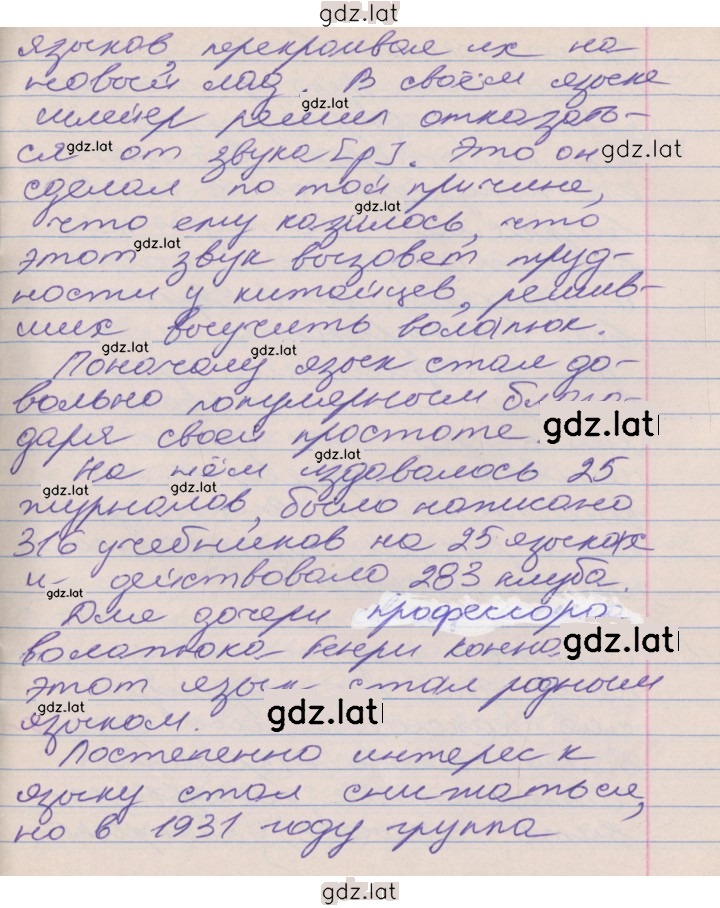 gdz.lat
языков, перекроивал их на
новый лад. В своём языке
gdz.lat
шлейер решил отказать-
ся от звука [р]. Это он
gdz.lat gdz.lat
сделал по той причине,
gdz.lat
что ему казилось, что
gdz.lat
этот звук вызовет труд-
ности у китайцев, решив-
ших выучить волапюк.
gdz.lat gdz.lat
Поначалу язык стал до-
вольно популярным благо-
gdz.lat
даря своей простоте.
gdz.lat
На нём издавалось 25
gdz.lat gdz.lat
журналов, было написано
316 учебников на 25 языках
и действовало 283 клуба.
gdz.lat
Для дочери профессора
волапюка Генри
gdz.lat
этот язык стал родным
gdz.lat
языком.
Постепенно интерес к
языку стал снижаться,
но в 1931 году группа
gdz.lat